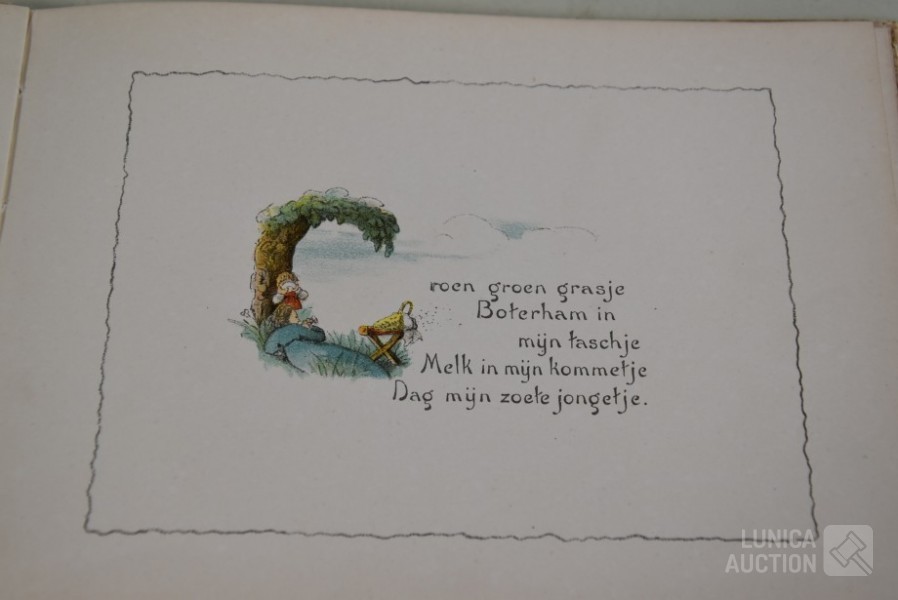 Groen groen grasje
Boterham in
mijn taschje
Melk in mijn kommetje
Dag mijn zoete jongetje.
LUNICA
AUCTION